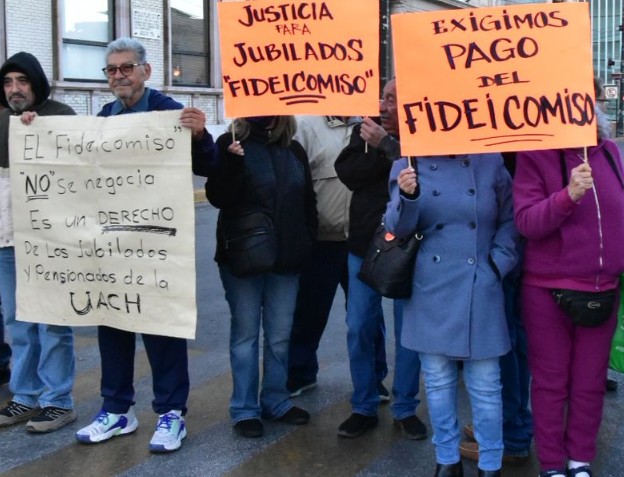 EL "Fideicomiso"
"NO" Se negocia
Es un DERECHO
De Los Jubilados
y Pensionados de la
UACH
JUSTICIA
PARA
JUBILADOS
"FIDEICOMISO"
EXIGIMOS
PAGO
DEL
FIDEICOMISO